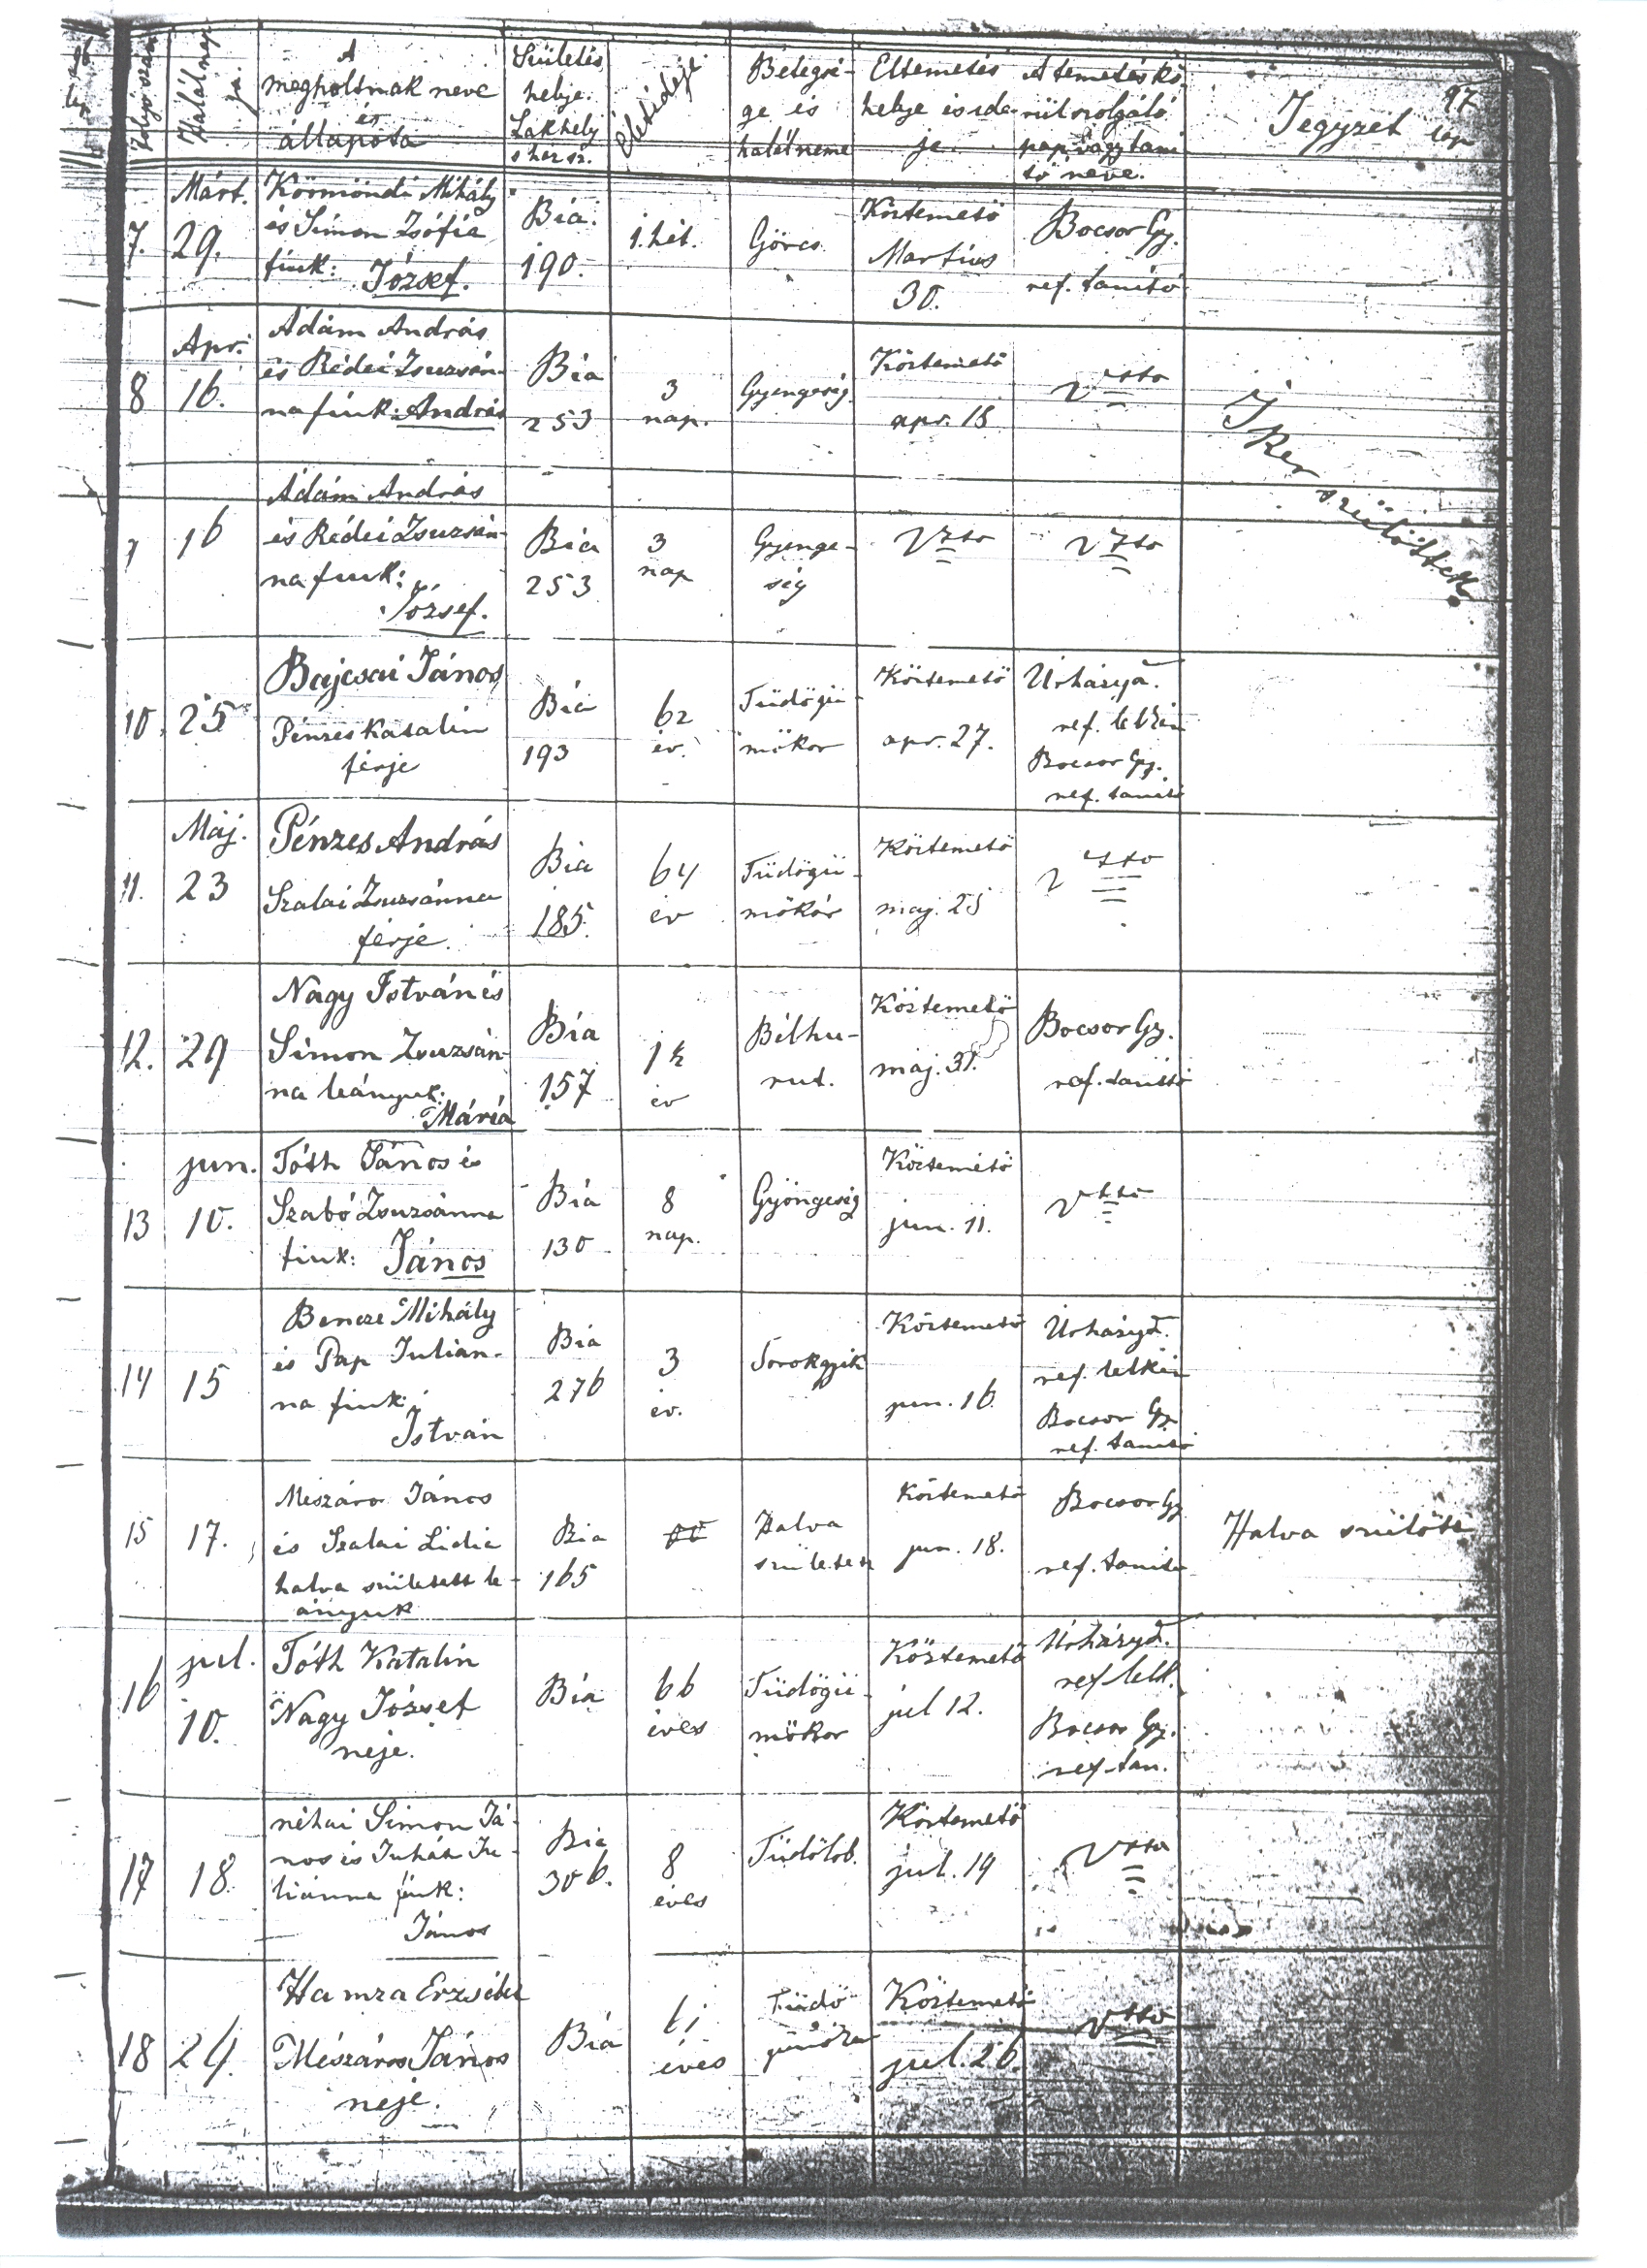 Folyó szám
Halálnap
ja.
A
megholtnak neve
és
állapota
Születés
helye.
Lakhely
s ház sz.
Életideje
Betegsé-
ge és
halálneme
Eltemetés
helye és ide-
je.
A temetés kö-
rül szolgáló
pap vagy tani-
tó neve.
Jegyzet
97
lap
7.
Márt.
29.
Körmöndi Mihály
és Simon Zsófia
fiuk: József.
Bia.
190.
1. hét.
Görcs
Köztemető
Martius
30.
Bocsor Gy.
ref. tanító
8
Apr.
16.
Ádám András
és Rédei Zsuzsán-
na fiuk: András
Bia
253
3
nap.
Gyengeség
Köztemető
apr. 18
Vstto
Iker szülöttek
9
16
Ádám András
és Rédei Zsuzsán-
na fiuk:
József.
Bia
253
3
nap
Gyenge-
ség
10.
25
Bajcsai János
Pénzes Katalin
férje
Bia
193
62
év.
Tüdőgü-
mőkor
Köztemető
apr. 27.
Úrházy
ref. lelkész
Bocsor Gy.
ref. tanitó
11.
Máj.
23
Pénzes András
Szalai Zsuzsánna
férje.
Bia
185.
64
év
Tüdőgü-
mőkór
Köztemető
maj. 25
12.
29
Nagy István és
Simon Zsuzsán-
na leányuk:
Mária
Bia
157
1½
év
Bélhu-
rut.
Köztemető
máj. 31.
Bocsor Gy.
ref. tanitó
13
jun.
10.
Tóth János és
Szabó Zsuzsánna
fiuk: János
Bia
130
8
nap.
Gyöngeség
Köztemető
jun. 11.
14
15
Bencze Mihály
és Pap Julián-
na fiuk:
István
Bia
276
3
év.
Torokgyik
Köztemető
jun. 16.
Úrházy
ref. lelkész
Bocsor Gy.
ref. tanitó
15
17.
Mészáros János
és Szalai Lidia
halva született le-
ányuk
Bia
165
Halva
született
Köztemető
jun. 18.
Bocsor Gy
ref. tanitó
Halva szülött
16
jul.
10.
Tóth Katalin
Nagy József
neje.
Bia
66
éves
Tüdőgü-
mőkor
Köztemető
jul 12.
Úrházy
ref lelk.
Bocsor Gy.
ref. tan.
17
18.
néhai Simon Já-
nos és Juhász Ju-
liánna fiuk:
János
Bia
306.
8
éves
Tüdőlob.
Köztemető
jul. 19
18
24.
Hamza Erzsébet
Mészáros János
neje.
Bia
éves
Tüdő
Köztemető
jul. 26.